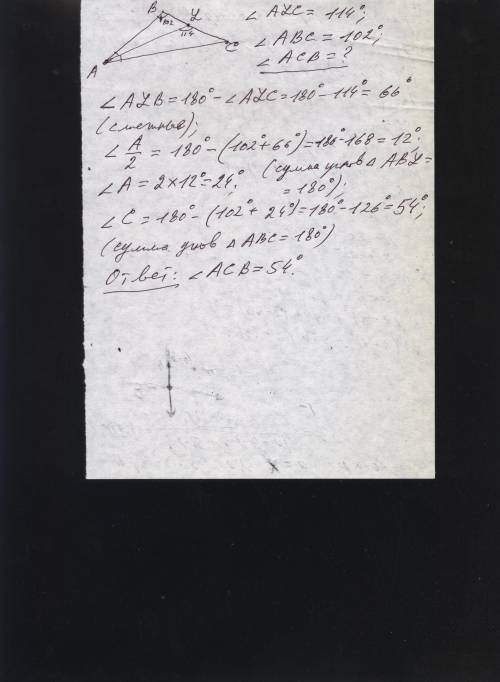 B
102
L
114
C
A
∠ALC = 114°;
∠ABC = 102°;
∠ACB = ?
∠ALB = 180° - ∠ALC = 180° - 114° = 66°
(смежные);
∠A/2 = 180° - (102° + 66°) = 180° - 168 = 12°.
(сумма углов △ ABL =
= 180°);
∠A = 2 × 12° = 24°.
∠C = 180° - (102° + 24°) = 180° - 126° = 54°;
(сумма углов △ ABC = 180°)
Ответ: ∠ACB = 54°.